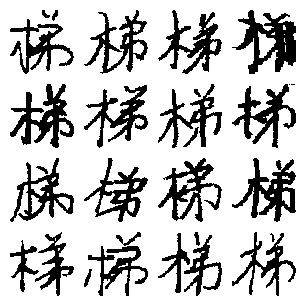 梯梯梯梯
梯梯梯梯
梯梯梯梯
梯梯梯梯